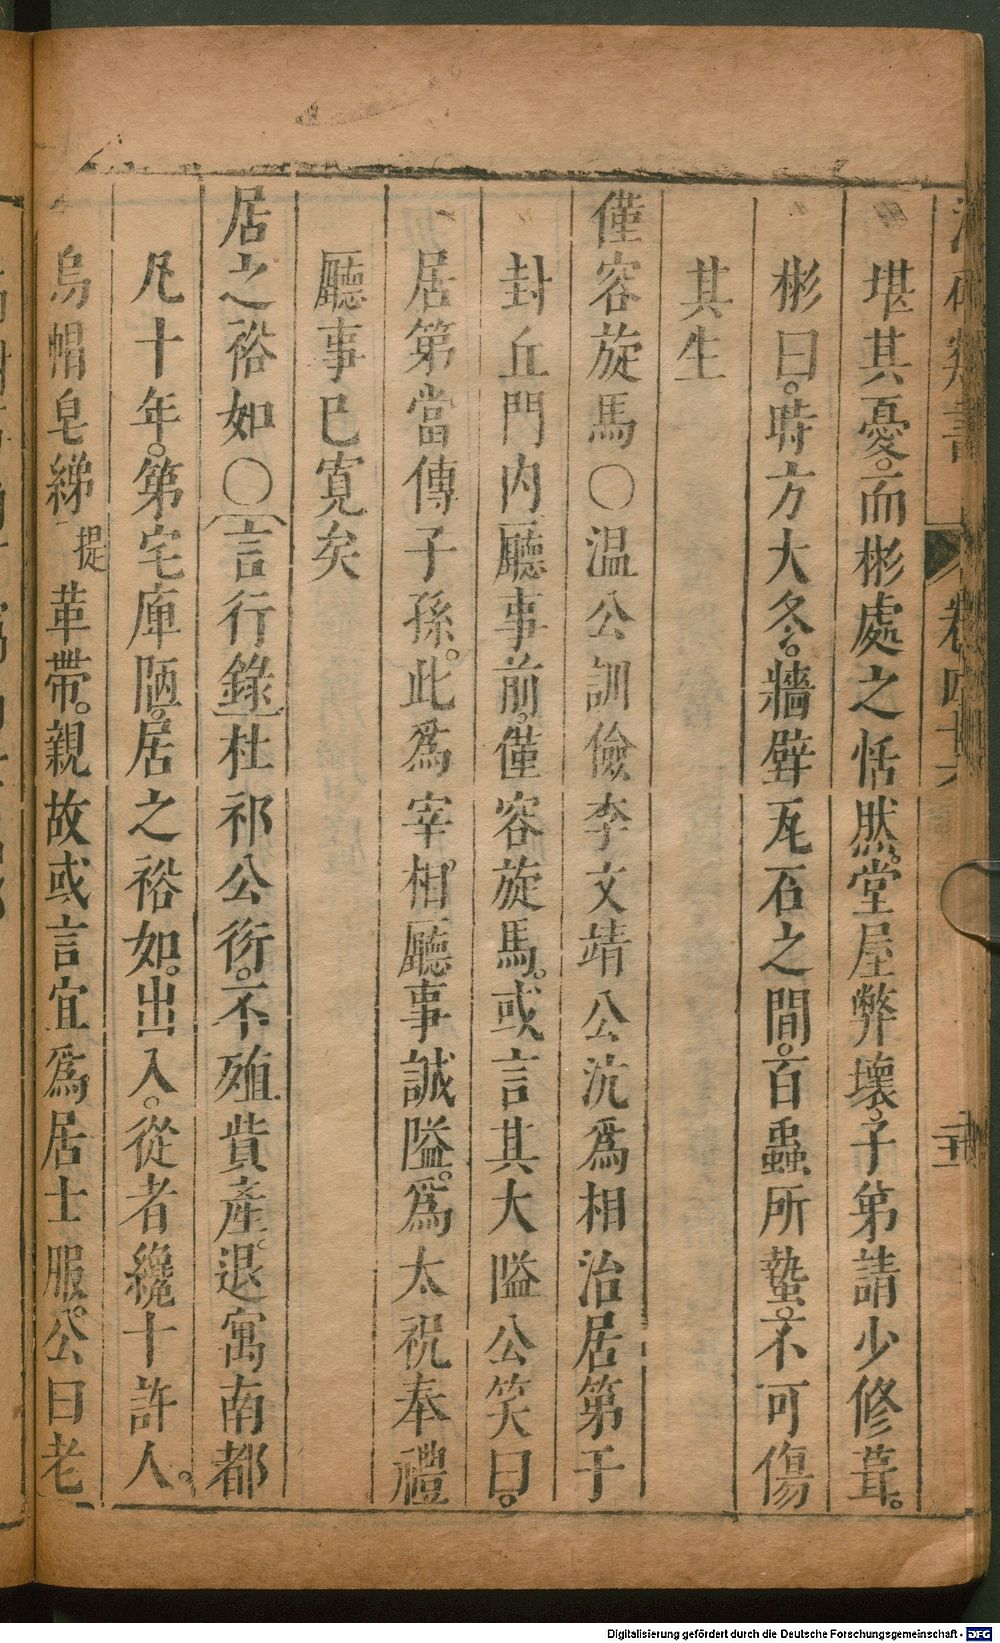 卷四十六
堪其憂。而彬處之恬然。堂屋弊壞。子第請少修葺。
彬曰。時方大冬。牆壁瓦石之間。百蟲所蟄。不可傷
其生
僅容旋馬〇溫公訓儉李文靖公沆爲相治居第于
封丘門内廳事前。僅容旋馬。或言其大隘公笑曰。
居第當傳子孫。此爲宰相。廳事誠隘。爲太祝奉禮
廳事已寬矣
居之裕如〇言行錄杜祁公衍。不殖貲產。退寓南都
凡十年。第宅庫陋。居之裕如。出入。從者纔十許人。
烏帽皂綈提革帶。親故或言宜爲居士服。公曰老
Digitalisierung gefördert durch die Deutsche Forschungsgemeinschaft - DFG